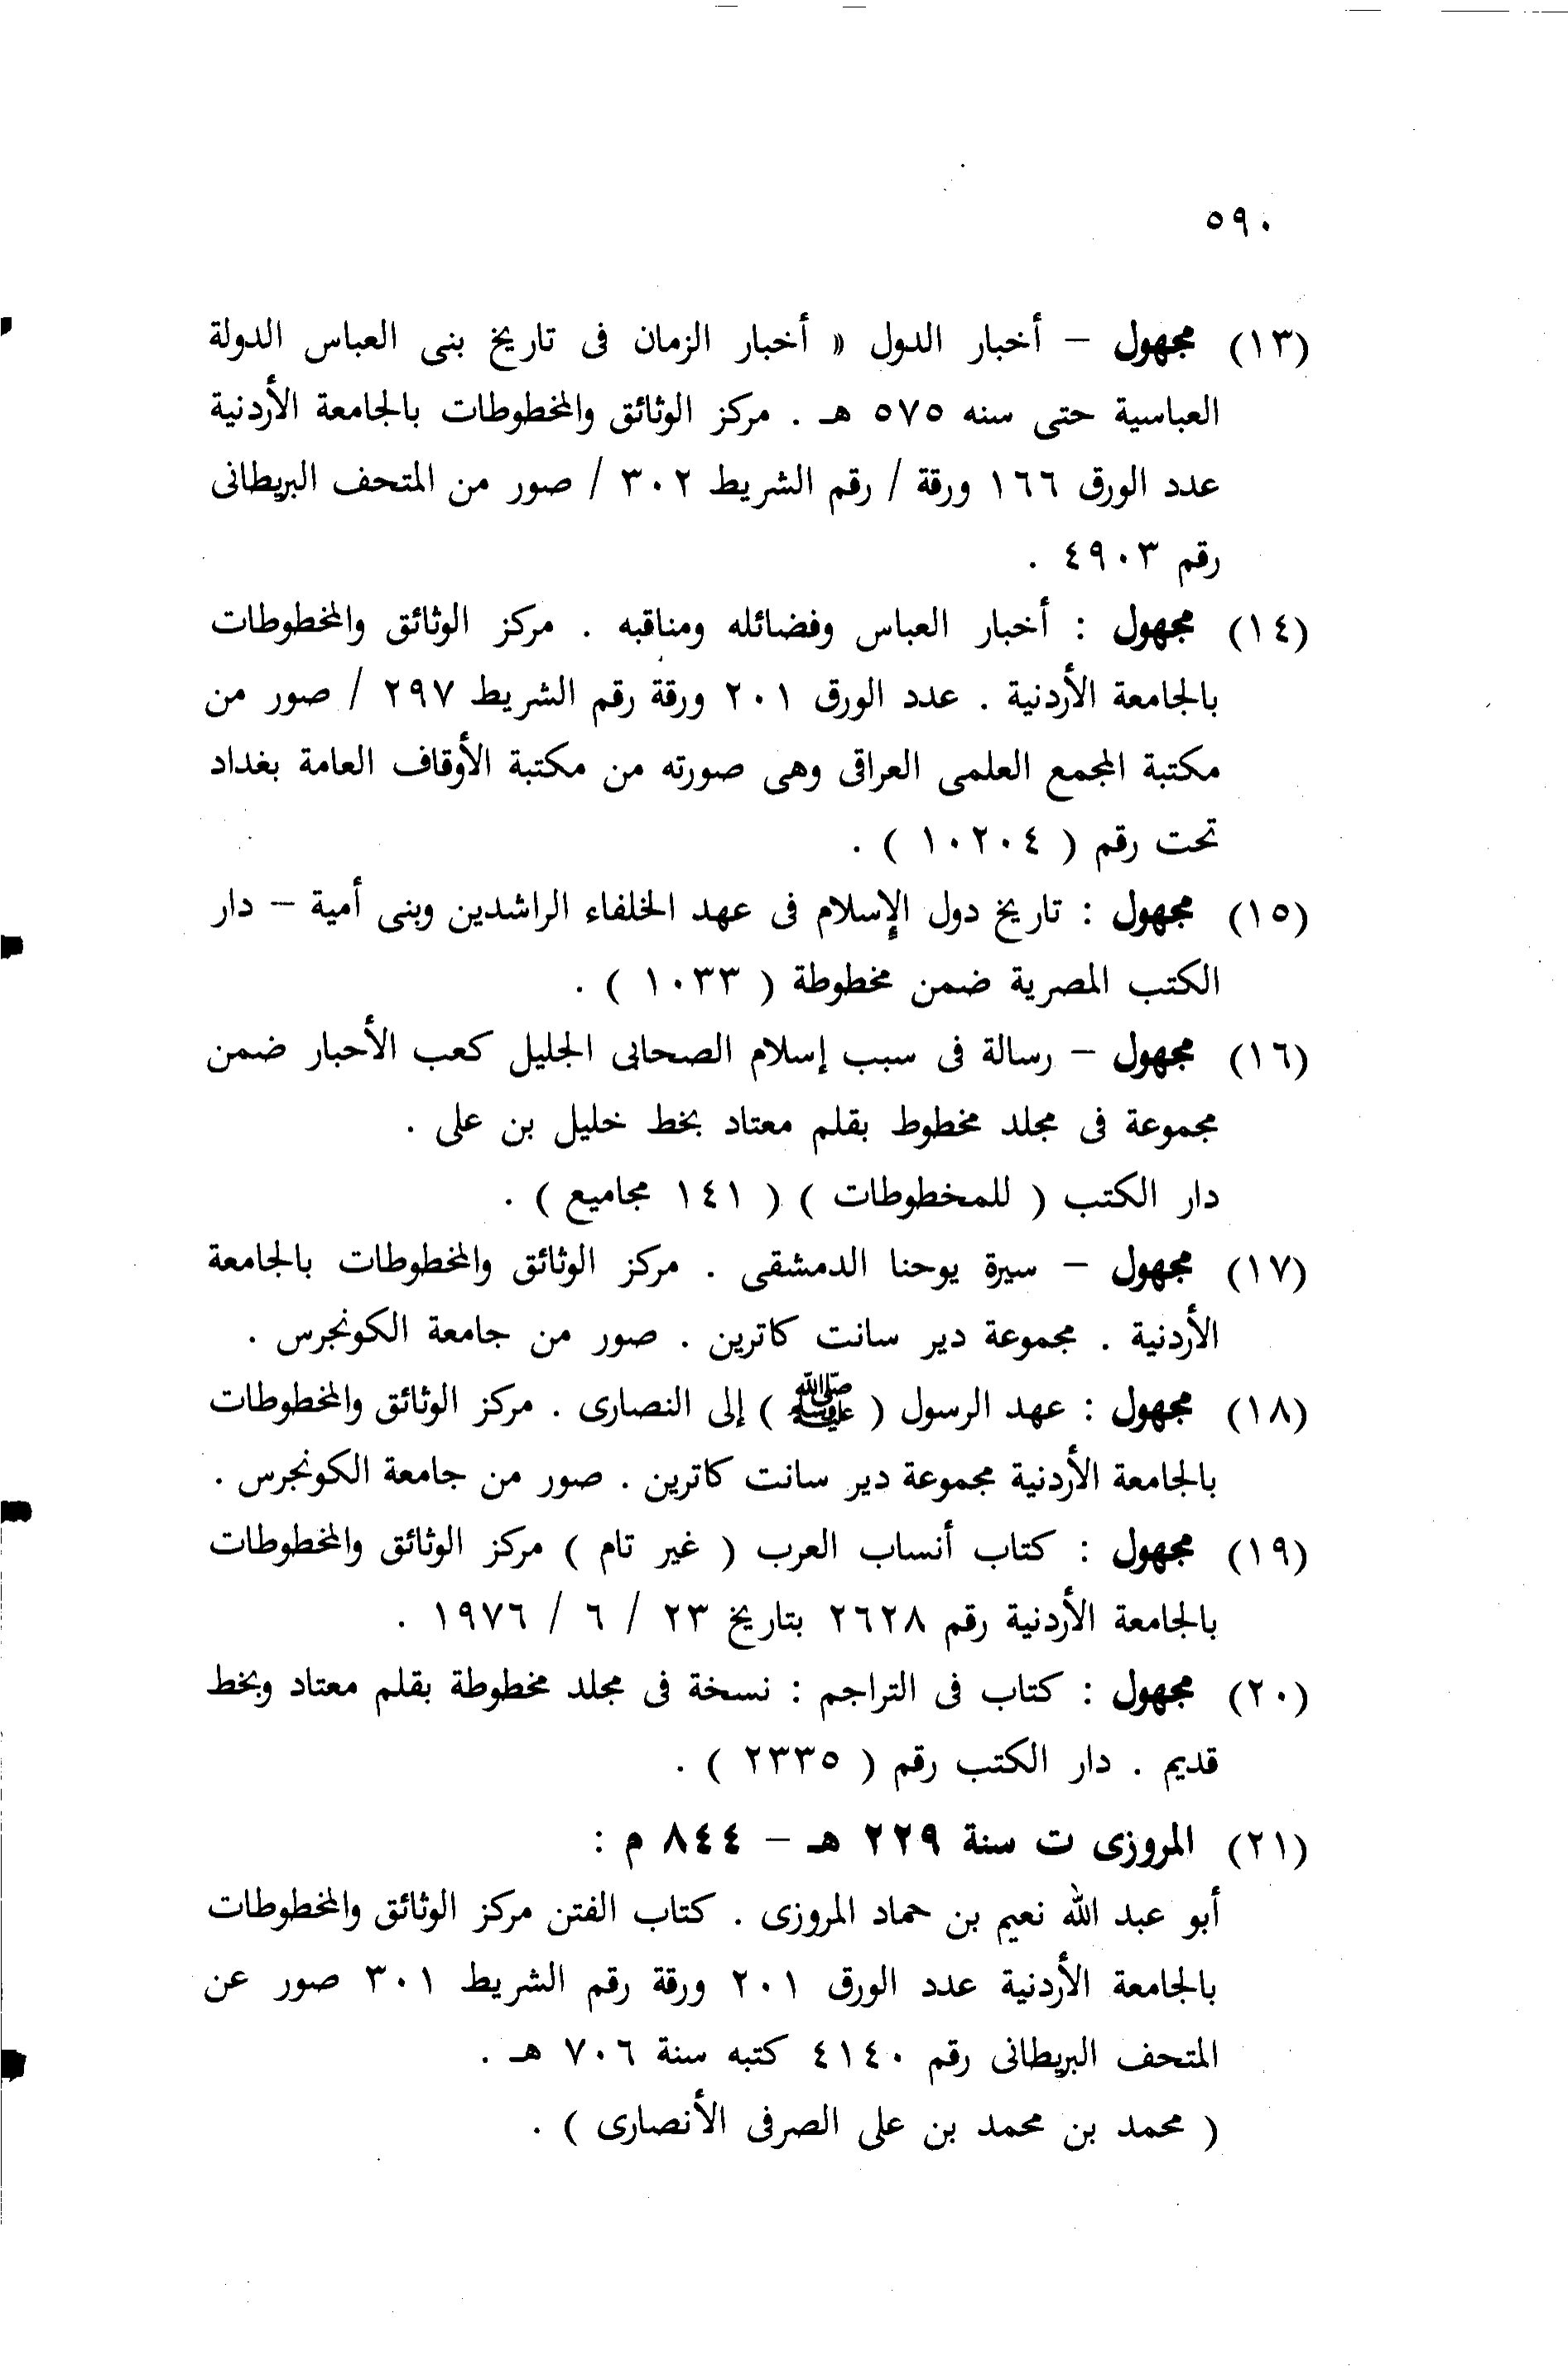 ٥٩٠
(١٣) مجهول – أخبار الدول « أخبار الزمان فى تاريخ بنى العباس الدولة
العباسية حتى سنه ٥٧٥ هـ . مركز الوثائق والمخطوطات بالجامعة الأردنية
عدد الورق ١٦٦ ورقة / رقم الشريط ٣٠٢ / صور من المتحف البريطانى
رقم ٤٩٠٣ .
(١٤) مجهول : أخبار العباس وفضائله ومناقبه . مركز الوثائق والمخطوطات
بالجامعة الأردنية . عدد الورق ٢٠١ ورقة رقم الشريط ٢٩٧ / صور من
مكتبة المجمع العلمى العراقى وهى صورته من مكتبة الأوقاف العامة بغداد
تحت رقم ( ١٠٢٠٤ ) .
(١٥) مجهول : تاريخ دول الإسلام فى عهد الخلفاء الراشدين وبنى أمية – دار
الكتب المصرية ضمن مخطوطة ( ١٠٣٣ ) .
(١٦) مجهول – رسالة فى سبب إسلام الصحابى الجليل كعب الأحبار ضمن
مجموعة فى مجلد مخطوط بقلم معتاد بخط خليل بن على .
دار الكتب ( للمخطوطات ) ( ١٤١ مجاميع ) .
(١٧) مجهول – سيرة يوحنا الدمشقى . مركز الوثائق والمخطوطات بالجامعة
الأردنية . مجموعة دير سانت كاترين . صور من جامعة الكونجرس .
(١٨) مجهول : عهد الرسول ( ﷺ ) إلى النصارى . مركز الوثائق والمخطوطات
بالجامعة الأردنية مجموعة دير سانت كاترين . صور من جامعة الكونجرس .
(١٩) مجهول : كتاب أنساب العرب ( غير تام ) مركز الوثائق والمخطوطات
بالجامعة الأردنية رقم ٢٦٢٨ بتاريخ ٢٣ / ٦ / ١٩٧٦ .
(٢٠) مجهول : كتاب فى التراجم : نسخة فى مجلد مخطوطة بقلم معتاد وبخط
قديم . دار الكتب رقم ( ٢٣٣٥ ) .
(٢١) المروزى ت سنة ٢٢٩ هـ – ٨٤٤ م :
أبو عبد الله نعيم بن حماد المروزى . كتاب الفتن مركز الوثائق والمخطوطات
بالجامعة الأردنية عدد الورق ٢٠١ ورقة رقم الشريط ٣٠١ صور عن
المتحف البريطانى رقم ٤١٤٠ كتبه سنة ٧٠٦ هـ .
( محمد بن محمد بن على الصرفى الأنصارى ) .